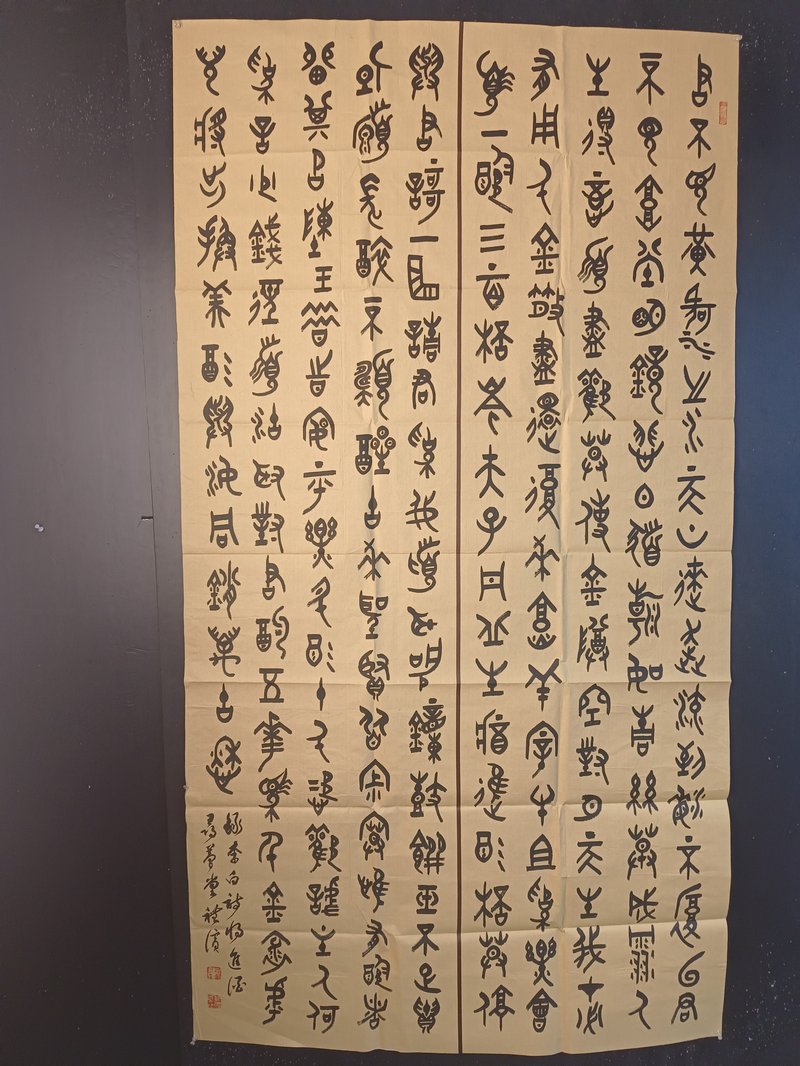 君不見黃河之水天上來奔流到海不復回君
不見高堂明鏡悲白髮朝如青絲暮成雪人
生得意須盡歡莫使金樽空對月天生我材必
有用千金散盡還復來烹羊宰牛且為樂會
須一飲三百杯岑夫子丹丘生將進酒杯莫停
與君歌一曲請君為我傾耳聽鐘鼓饌玉不足貴
但願長醉不願醒古來聖賢皆寂寞惟有飲者
留其名陳王昔時宴平樂斗酒十千恣歡謔主人何
為言少錢徑須沽取對君酌五華馬千金裘呼
兒將出換美酒與爾同銷萬古愁
錄李白詩將進酒